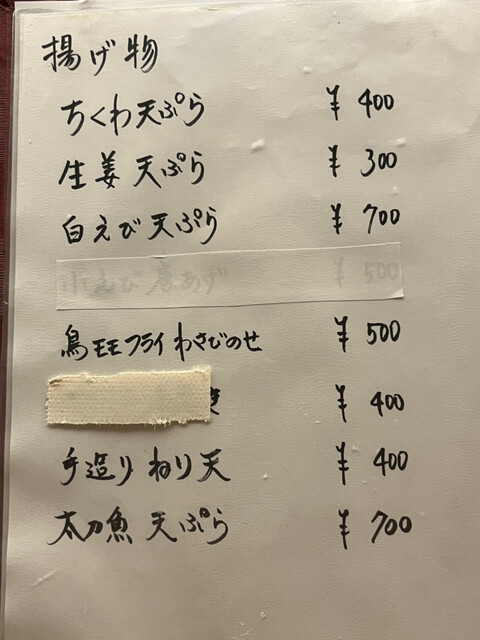 揚げ物
ちくわ天ぷら ¥ 400
生姜 天ぷら ¥ 300
白えび 天ぷら ¥ 700
小えび唐あげ ¥ 500
鳥モモフライわさびのせ ¥ 500
¥ 400
手造り ねり天 ¥ 400
太刀魚 天ぷら ¥ 700